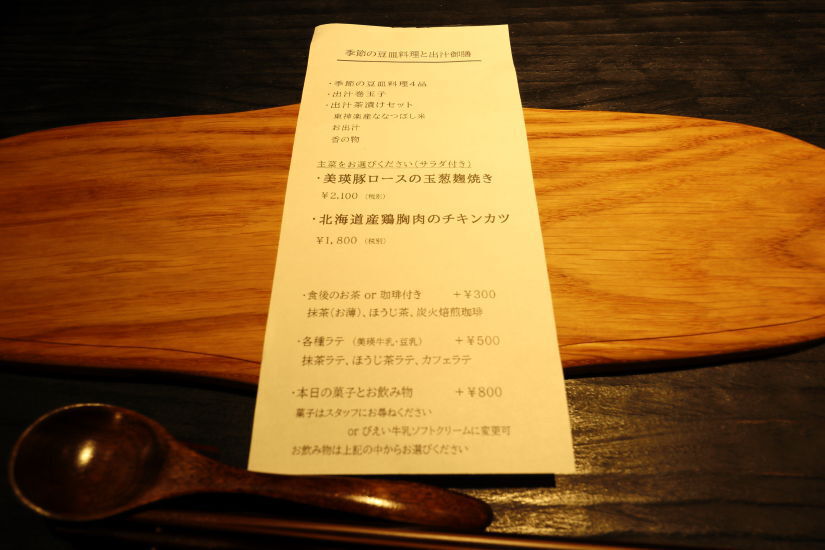 季節の豆皿料理と出汁御膳
・季節の豆皿料理4品
・出汁巻玉子
・出汁茶漬けセット
東神楽産ななつぼし米
お出汁
香の物
主菜をお選びください(サラダ付き)
・美瑛豚ロースの玉葱麹焼き
¥2,100 (税別)
・北海道産鶏胸肉のチキンカツ
¥1,800 (税別)
・食後のお茶 or 珈琲付き +¥300
抹茶(お薄)、ほうじ茶、炭火焙煎珈琲
・各種ラテ (美瑛牛乳・豆乳) +¥500
抹茶ラテ、ほうじ茶ラテ、カフェラテ
・本日の菓子とお飲み物 +¥800
菓子はスタッフにお尋ねください
or びえい牛乳ソフトクリームに変更可
お飲み物は上記の中からお選びください